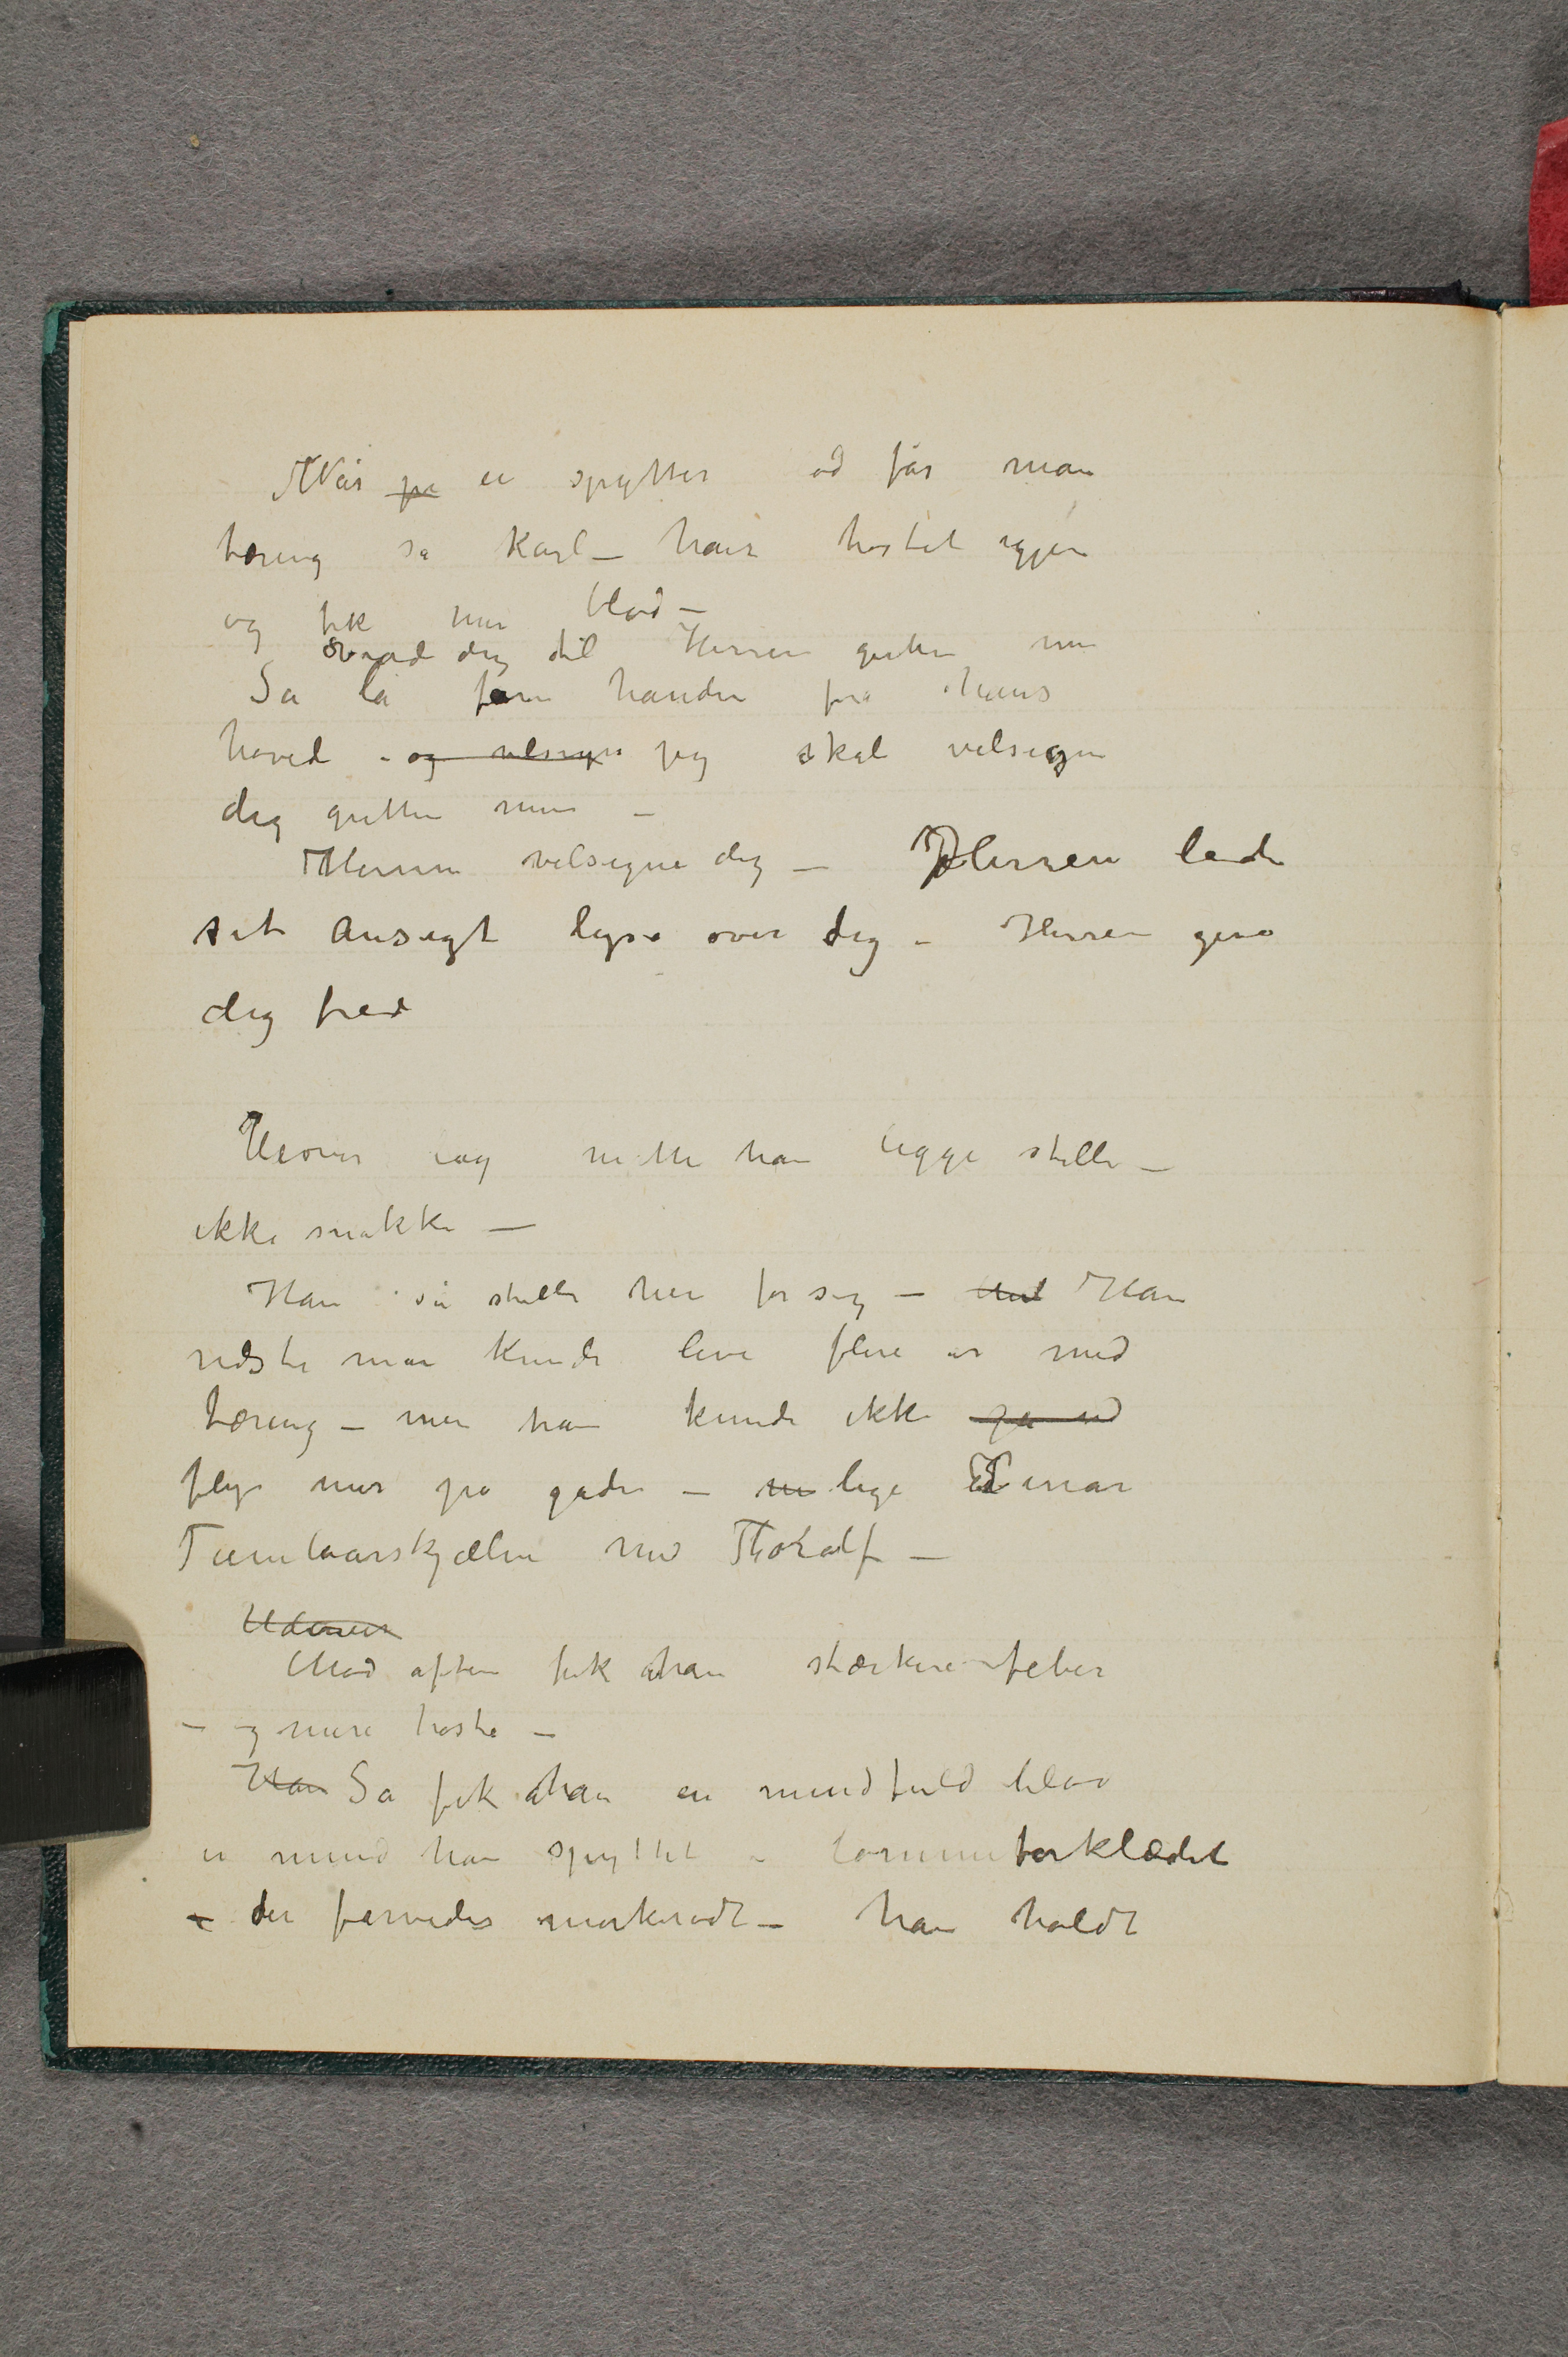 Når pa en spytter ud får man
tæring sa Karl – han hostet igjen
og fik mer blod –
Svend dig til Herren gutten min
Sa la faren hænder pa hans
hoved – og velsign jeg skal velsigne
dig gutten min –
Herren velsigne dig – Herren lade
sit Ansigt lyse over dig – Herren give
dig fred
Udover dag måtte han ligge stille –
ikke snakke –
Han så stille hen for sig – Han
vidste man kunde leve flere år med
tæring – men han kunde ikke ga ud
flyve mer på gaden – lege Einar
Tambarskjælve med Thoralf –
Udover
Mod aften fik han stærkere feber
– og mere hoste –
Han Sa fik han en mundfuld blod
i mund han spyttet i lommetørklædet
– der farvedes mørkerødt – han holdt